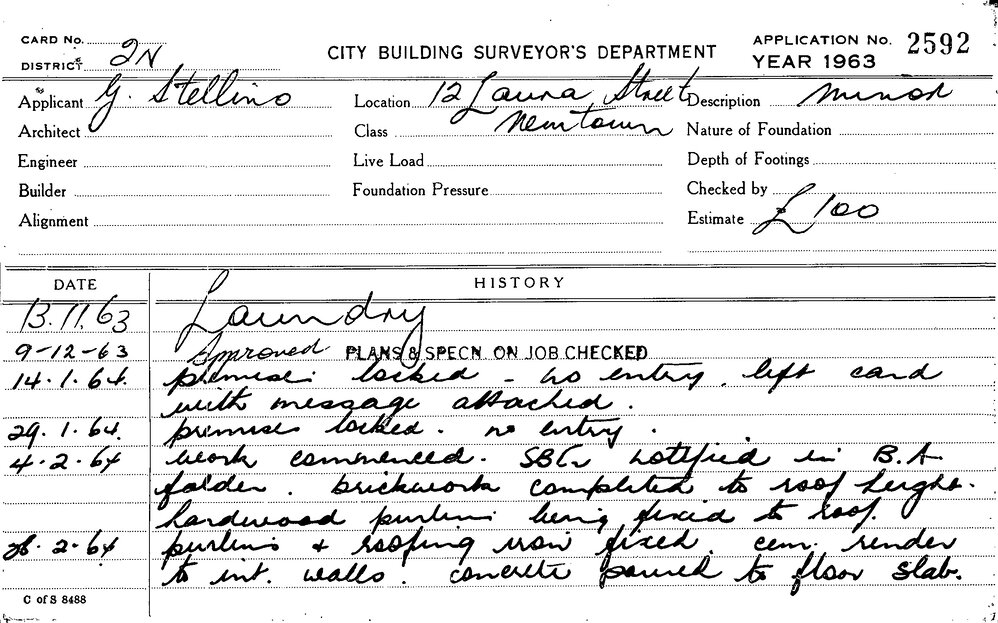 CARD No.
DISTRICT 2N
CITY BUILDING SURVEYOR'S DEPARTMENT
APPLICATION No. 2592
YEAR 1963
Applicant G. Stellino
Location 12 Laura Street
Newtown
Description Minor
Architect
Class
Nature of Foundation
Engineer
Live Load
Depth of Footings
Builder
Foundation Pressure
Checked by
Alignment
Estimate £100
DATE HISTORY
13.11.63 Laundry
9-12-63 Approved PLANS & SPECN. ON JOB CHECKED
14.1.64. premises locked - no entry. left card
with message attached.
29.1.64. premises locked. no entry.
4.2.64 work commenced. notified in B.A.
folder. brickwork completed to roof height.
hardwood purlins being fixed to roof.
26.2.64 purlins & roofing iron fixed. cem. render
to int. walls. concrete poured to floor slab.
C of S 8488